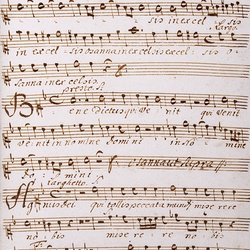 sis in excel - sis
largo
in excel - sis osanna in excelsis excel - sis o -
sanna in excelsis
presto
Bene Dictus qui Ve - nit qui veni
ve nit in no mine Domini in no mine
Do - mini Osanna ut Supra
larghetto
Agnus dei qui tollis peccata mundi mise rere
no - bis mise re re no - bis